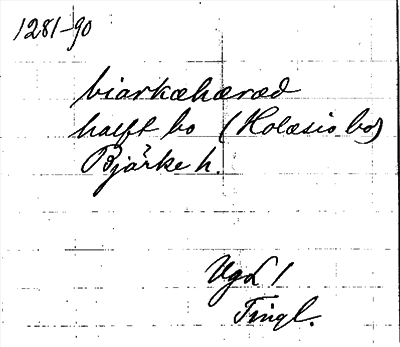 1281-90
biarkæhæræd
halft bo (Kolæsio bo)
Bjärke h.
VgL 1
Tingl.